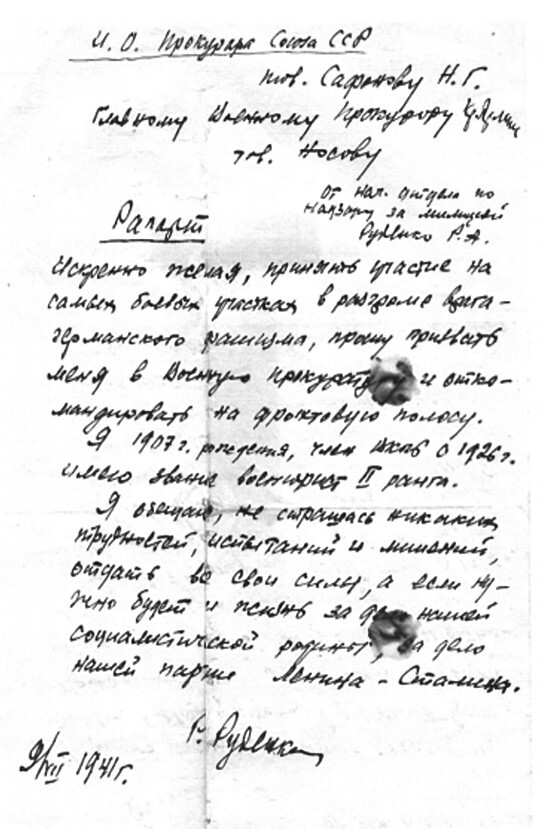 И. О. Прокурора Союза ССР
тов. Сафонову Н. Г.
Главному Военному Прокурору
тов. Носову
От нач. отдела по
надзору за милицией
Руденко Р. А.
Рапорт
Искренно желая, принять участие на
самых боевых участках в разгроме врага –
германского фашизма, прошу призвать
меня в Военную прокуратуру и отко-
мандировать на фронтовую полосу.
Я 1907 г. рождения, член ВКПб с 1926 г.
имею звание военюрист II ранга.
Я обещаю, не страшась никаких
трудностей, испытаний и лишений,
отдать все свои силы, а если ну-
жно будет и жизнь за дело нашей
социалистической родины, за дело
нашей партии Ленина – Сталина.
Р. Руденко
9/VII 1941 г.